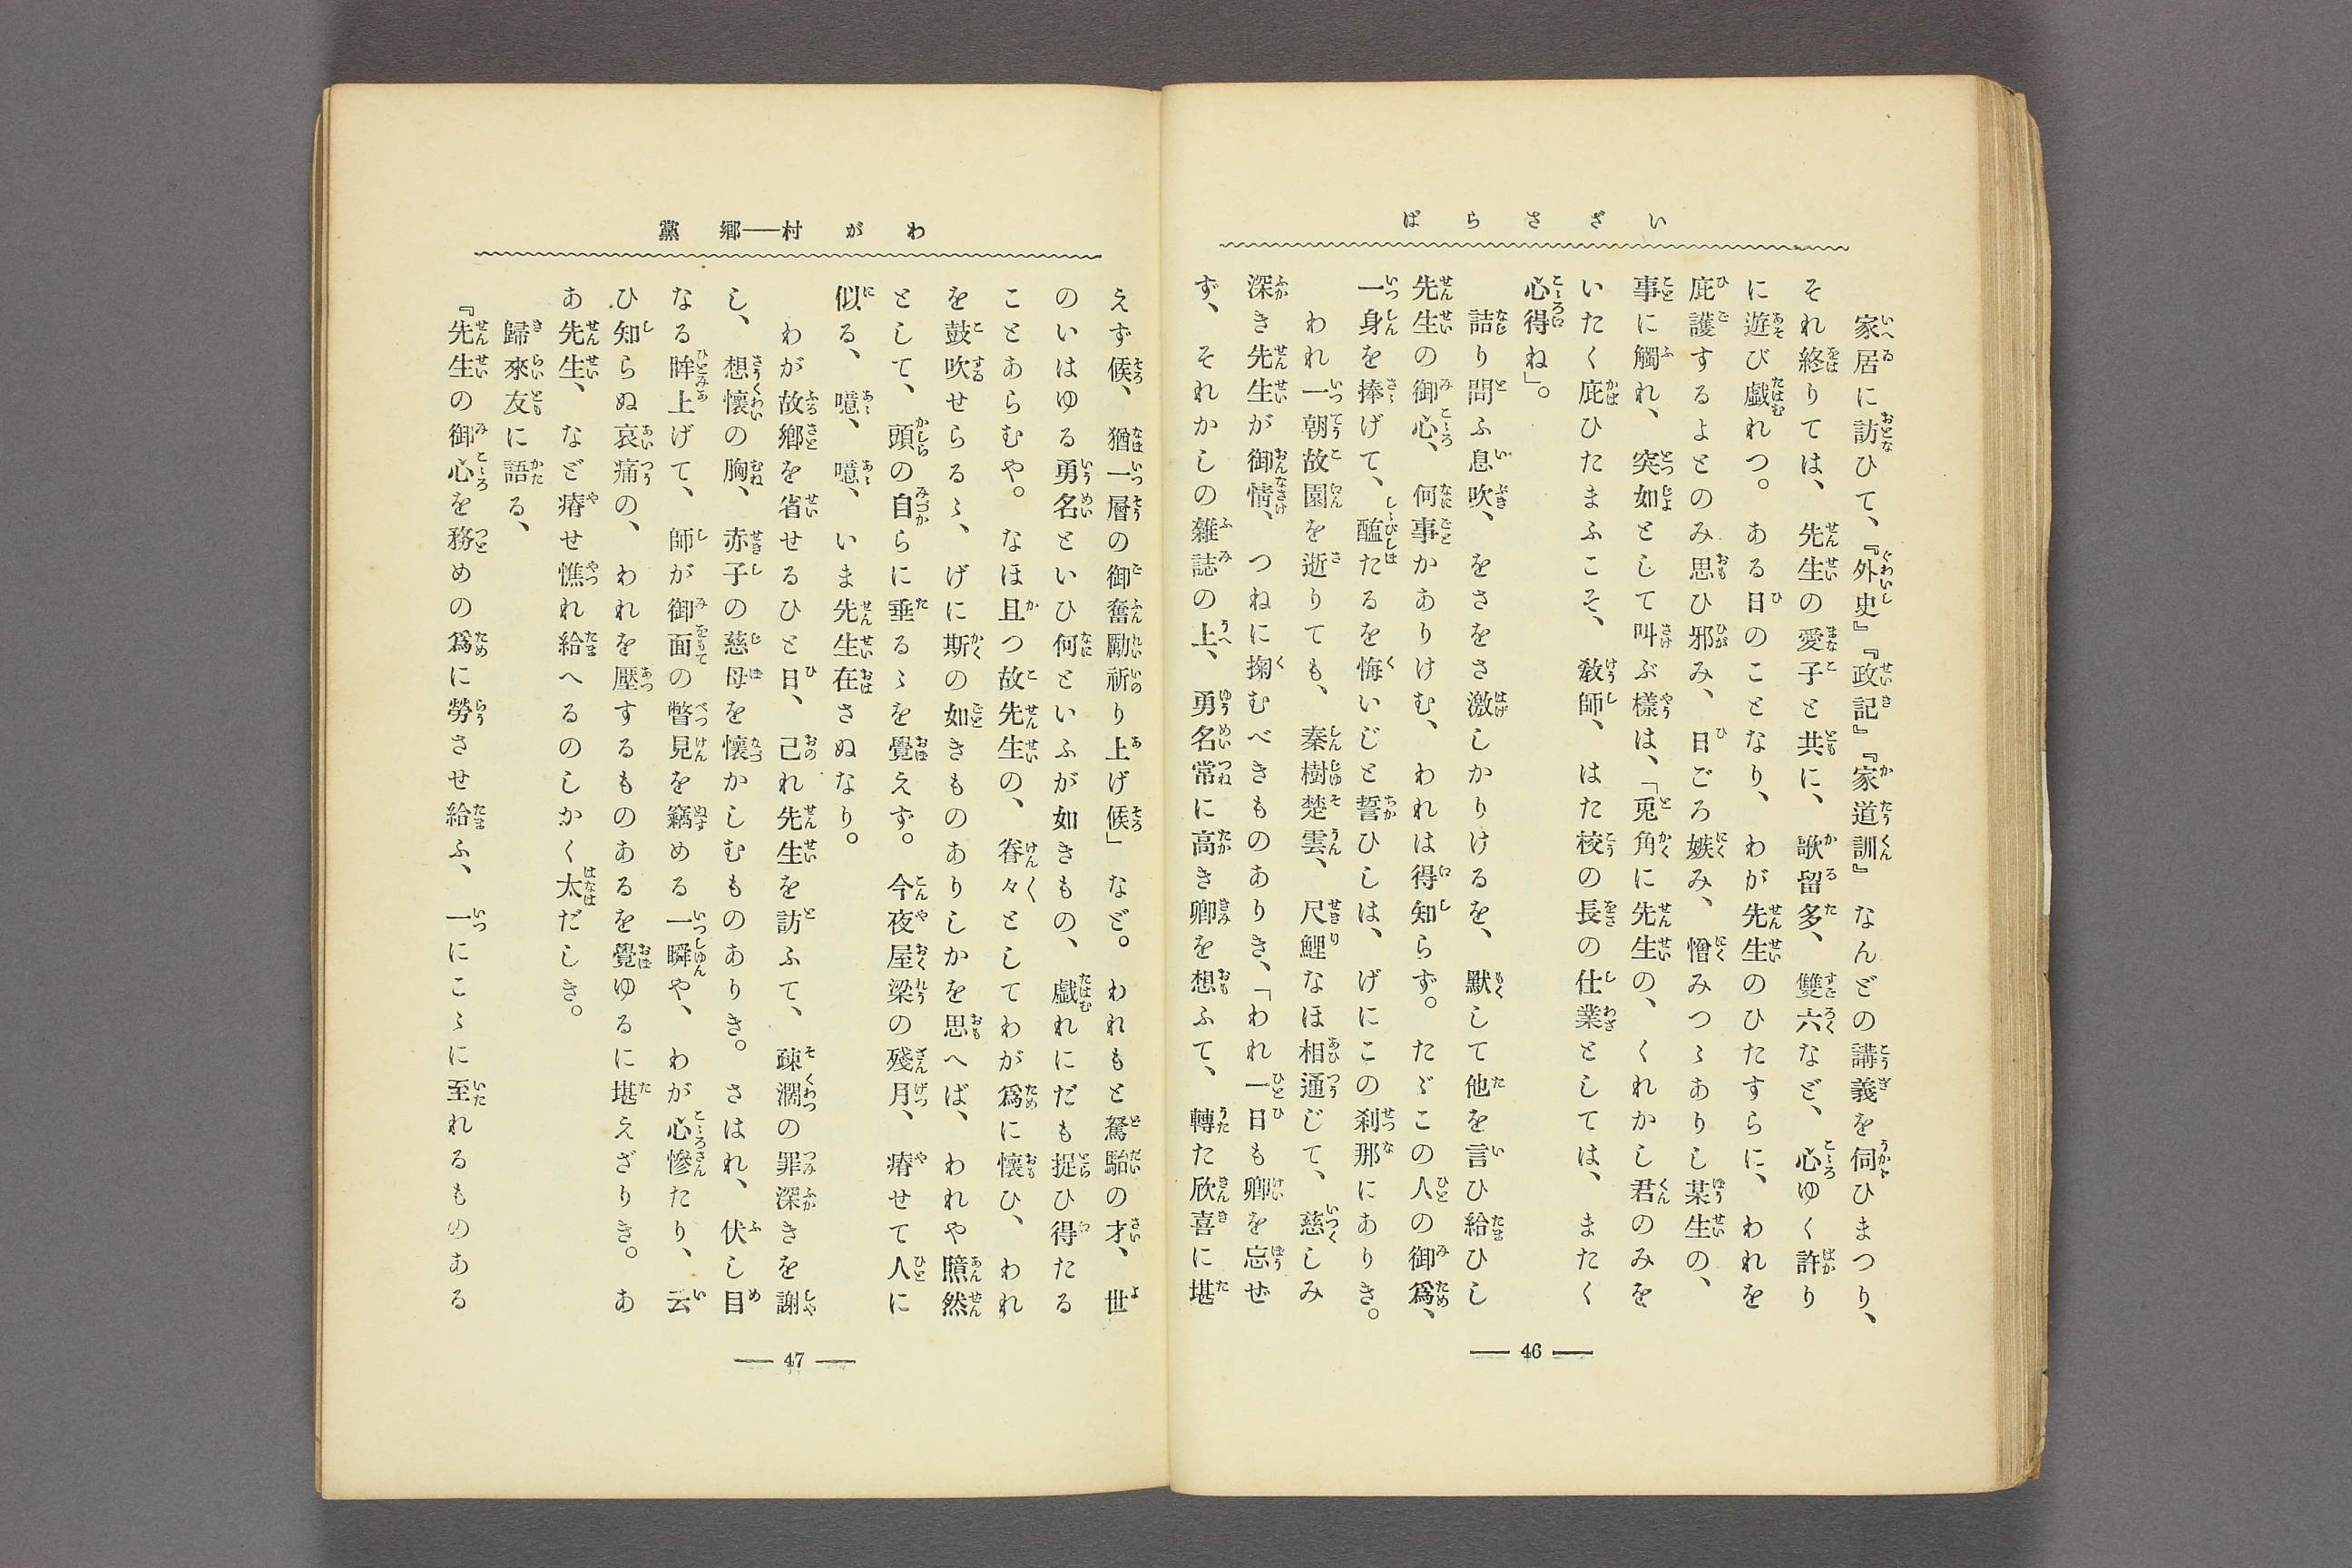 いざさらば
家居に訪ひて、『外史』『政記』『家道訓』なんどの講義を伺ひまつり、
それ終りては、先生の愛子と共に、歌留多、雙六など、心ゆく許り
に遊び戯れつ。ある日のことなり、わが先生のひたすらに、われを
庇護するよとのみ思ひ邪み、日ごろ嫉み、憎みつゝありし某生の、
事に觸れ、突如として叫ぶ樣は、「兎角に先生の、くれかし君のみを
いたく庇ひたまふこそ、教師、はた校の長の仕業としては、またく
心得ね」。
詰り問ふ息吹、をさをさ激しかりけるを、默して他を言ひ給ひし
先生の御心、何事かありけむ、われは得知らず。たゞこの人の御爲、
一身を捧げて、醢たるを悔いじと誓ひしは、げにこの刹那にありき。
われ一朝故園を逝りても、秦樹楚雲、尺鯉なほ相通じて、慈しみ
深き先生が御情、つねに掬むべきものありき、「われ一日も卿を忘ぜ
ず、それかしの雜誌の上、勇名常に高き卿を想ふて、轉た欣喜に堪
— 46 —
わが村——郷黨
えず候、猶一層の御奮勵祈り上げ候」など。われもと駑駘の才、世
のいはゆる勇名といひ何といふが如きもの、戯れにだも捉ひ得たる
ことあらむや。なほ且つ故先生の、眷々としてわが爲に懷ひ、われ
を鼓吹せらるゝ、げに斯の如きものありしかを思へば、われや黯然
として、頭の自らに垂るゝを覺えず。今夜屋梁の殘月、瘠せて人に
似る、噫、噫、いま先生在さぬなり。
わが故郷を省せるひと日、己れ先生を訪ふて、疎濶の罪深きを謝
し、想懷の胸、赤子の慈母を懷かしむものありき。さはれ、伏し目
なる眸上げて、師が御面の瞥見を竊める一瞬や、わが心慘たり、云
ひ知らぬ哀痛の、われを壓するものあるを覺ゆるに堪えざりき。あ
あ先生、など瘠せ憔れ給へるのしかく太だしき。
歸來友に語る、
『先生の御心を務めの爲に勞させ給ふ、一にこゝに至れるものある
— 47 —